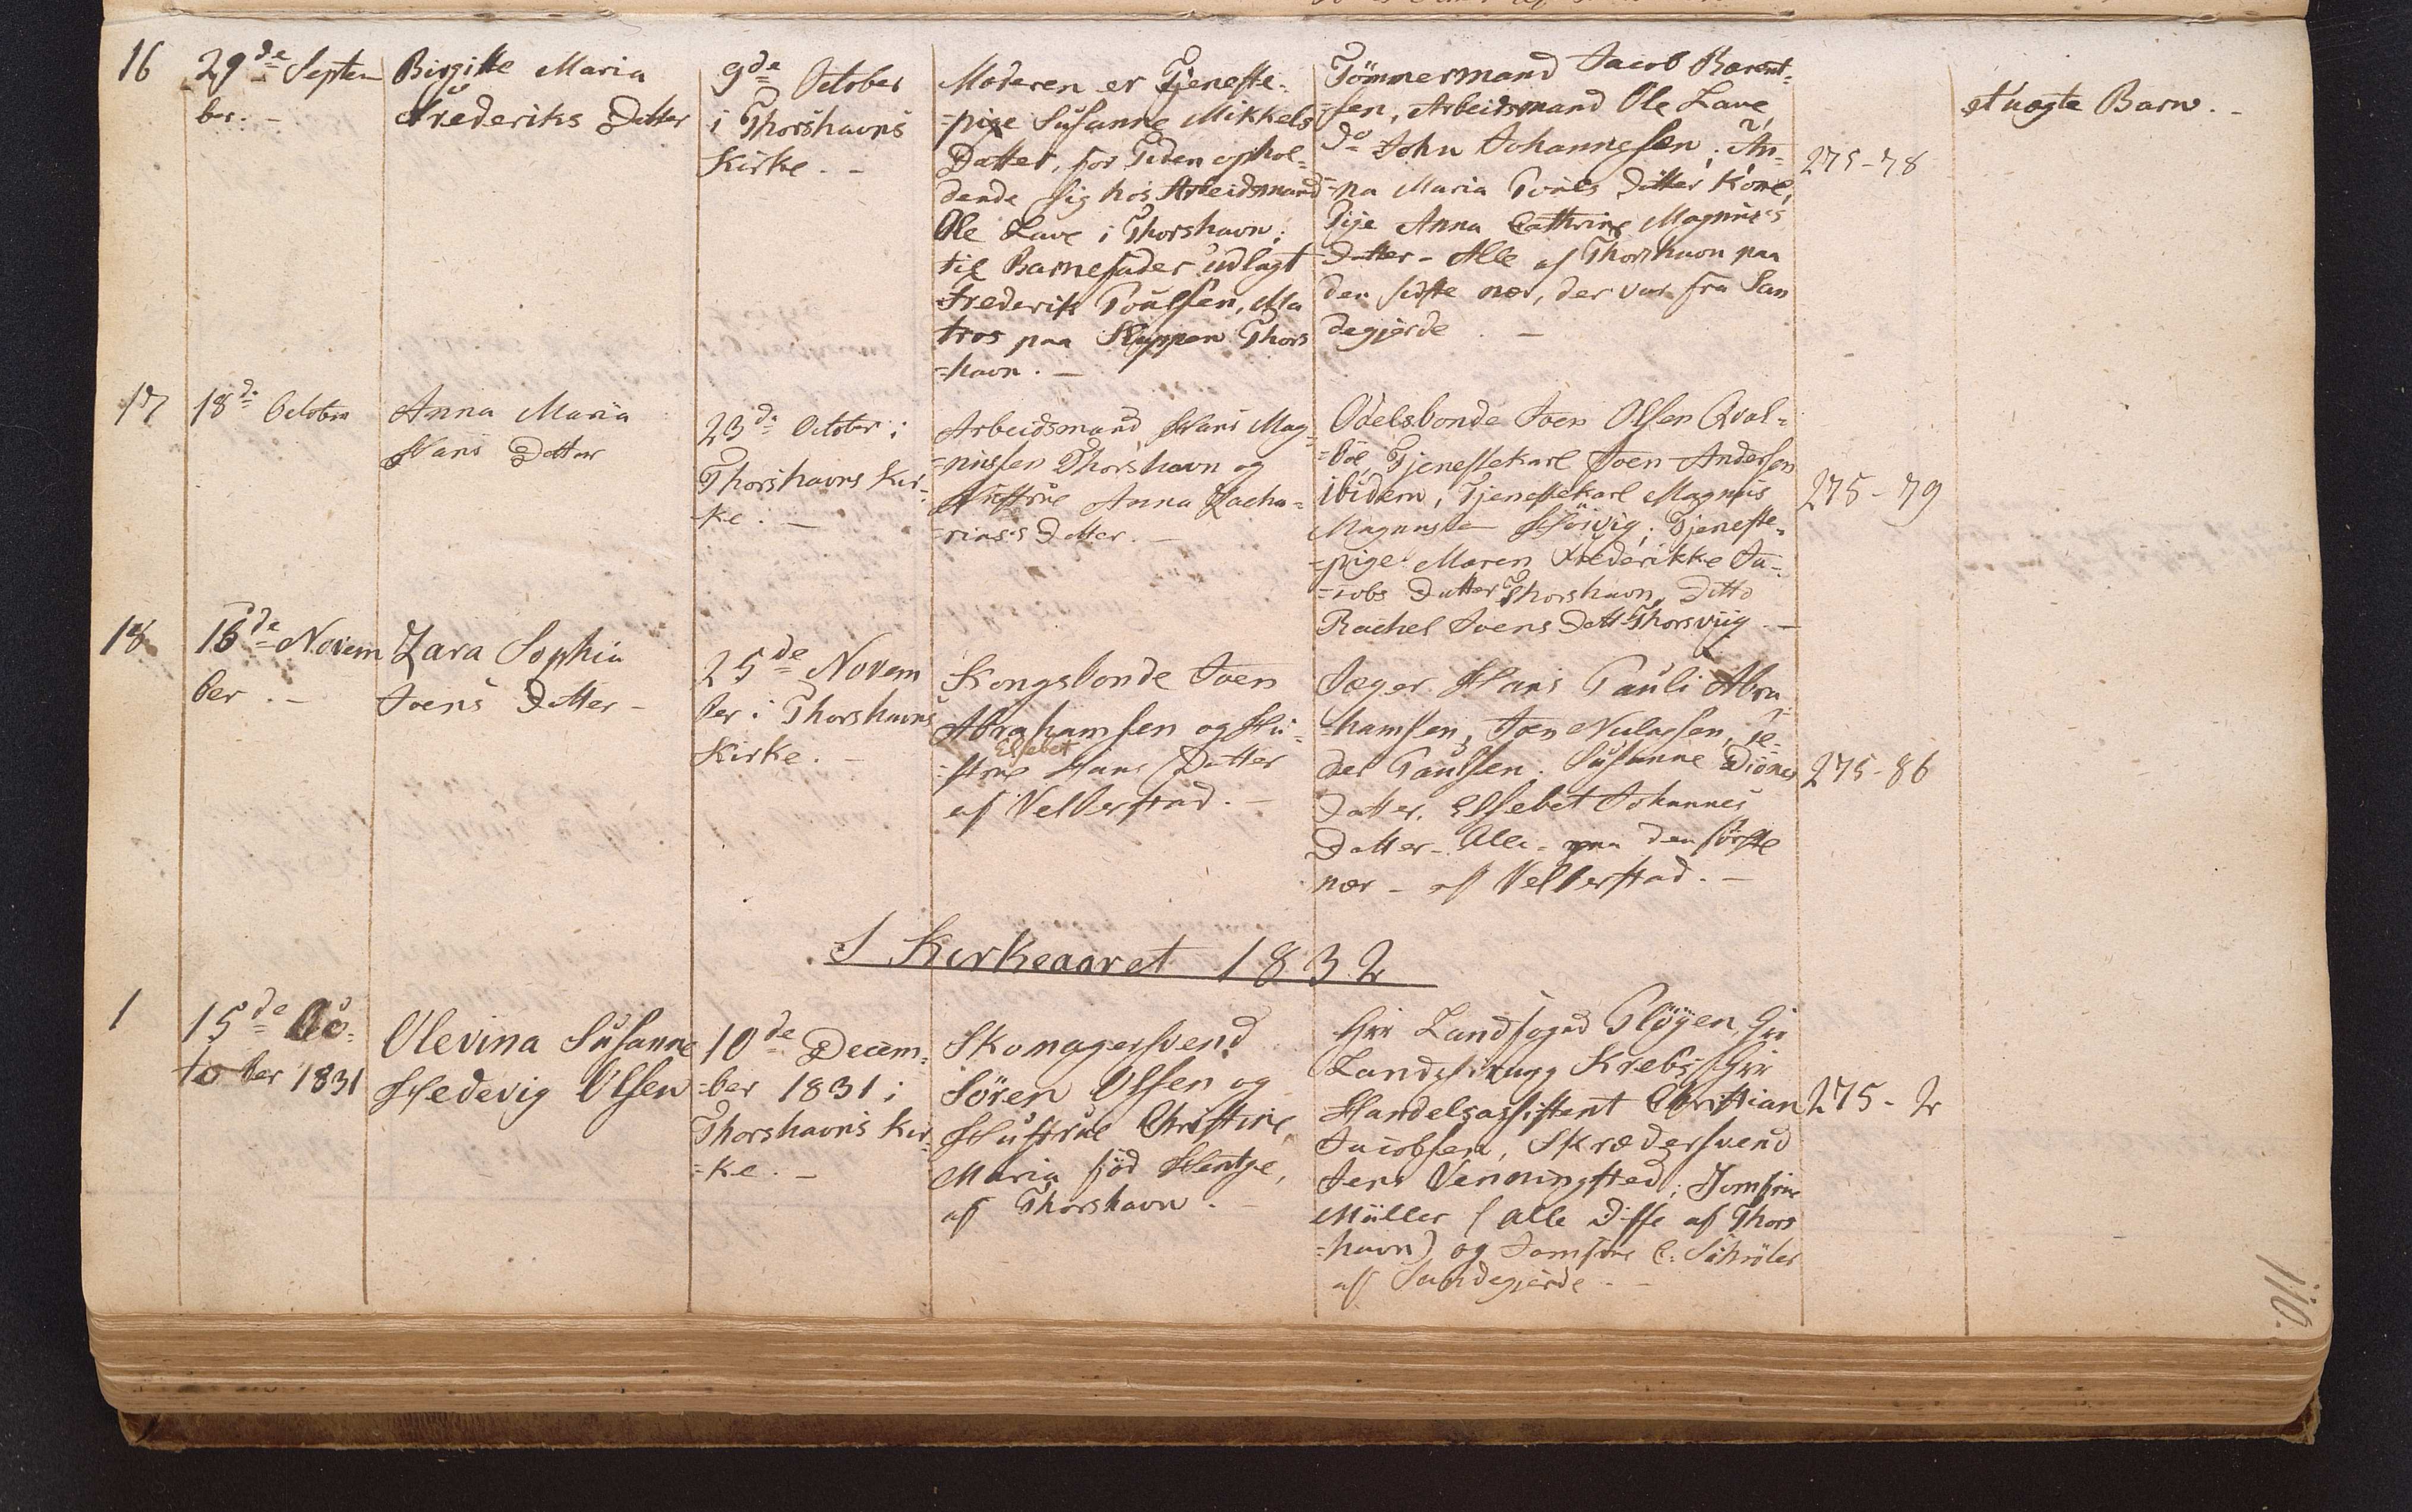 16
29de Septem
ber. -
Birgitte Maria
Frederiks Datter
9de October
i Thorshavns
Kirke. -
Moderen er Tjeneste-
-pige Susanne Mikkels
Datter, for Tiden ophol-
dende sig hos Arbeidsmand
Ole Lave i Thorshavn;
til Barnefader udlagt
Frederik Poulsen, Ma
tros paa Skuppen Thors
-havn. -
Tömmermand Jacob Barent-
-sen, Arbeidsmand Ole Lave,
do John Johannesen; An-
-na Maria Pouls Datter Kone,
Pige Anna Cathrine Magnus's
Datter - Alle af Thorshavn paa
den sidste nær, der var fra San
degjerde. -
275-78
et uægte Barn. -
17
18de October
Anna Maria
Hans Datter
23de October i
Thorshavns Kir-
-ke. -
Arbeidsmand Hans Mag-
-nussen Thorshavn og
Hustrue Anna Zacha-
-rias's Datter. -
Odelsbonde Joen Olsen Qval-
-böe, Tjenestekarl Joen Andersen
ibidem, Tjenestekarl Magnus
Magnussen Höivig; Tjeneste-
-pige Maren Frederikke Ja-
-cobs Datter Thorshavn, ditto
Rachel Joens Datt Thorsviig. -
275-79
18
16de Novem
ber. -
Zara Sophia
Joens Datter -
25de Novem
ber i Thorshavns
Kirke. -
Kongsbonde Joen
Abrahamsen og Hu-
Elsebet
-strue Hans Datter
af Velberstad. -
Jæger Hans Pauli Abra
-hamsen, Joen Niclassen, Pe-
der Paulsen. Susanne Diones
Datter, Elsebet Johannes
Datter - Alle - paa den förste
nær - af Velberstad. -
275-86
I Kirkeaaret 1832
1
15de Oc-
tober 1831
Olevina Susanne
Hedevig Olsen
10de Decem-
-ber 1831 i
Thorshavns Kir-
-ke. -
Skomagersvend
Sören Olsen og
Hustrue Christine
Maria föd Hentze,
af Thorshavn. -
Hrr Landfoged Plöyen, Hrr
Landchirurg Krebs, Hrr
Handelsassistent Christian
Jacobsen, Skrædersvend
Jens Venningsted; Jomfrue
Müller (alle disse af Thors
-havn) og Jomfrue C: Schröter
af Sandegjerde. -
275-2
110.